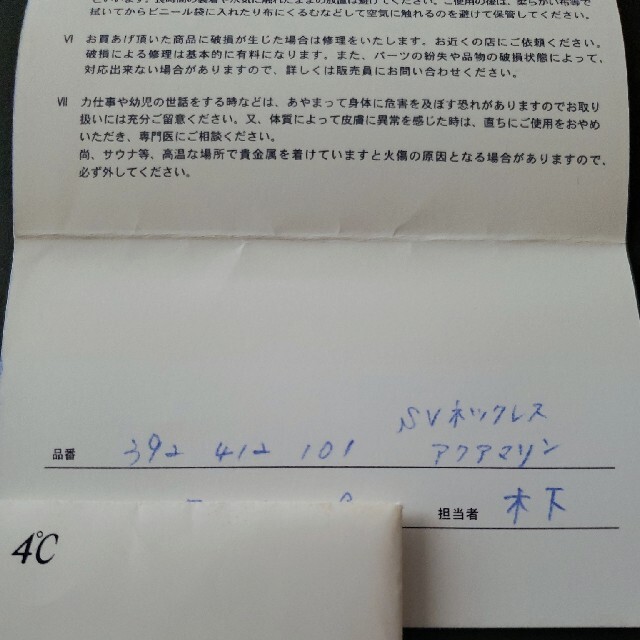 拭いてからビニール袋に入れたり布にくるむなどして空気に触れるのを避けて保管してください。
Ⅵ お買あげ頂いた商品に破損が生じた場合は修理をいたします。お近くの店にご依頼ください。
破損による修理は基本的に有料になります。また、パーツの紛失や品物の破損状態によって、
対応出来ない場合がありますので、詳しくは販売員にお問い合わせください。
Ⅶ 力仕事や幼児の世話をする時などは、あやまって身体に危害を及ぼす恐れがありますのでお取り
扱いには充分ご留意ください。又、体質によって皮膚に異常を感じた時は、直ちにご使用をおやめ
いただき、専門医にご相談ください。
尚、サウナ等、高温な場所で貴金属を着けていますと火傷の原因となる場合がありますので、
必ず外してください。
SVネックレス
品番 392 412 101 アクアマリン
担当者 木下
4℃